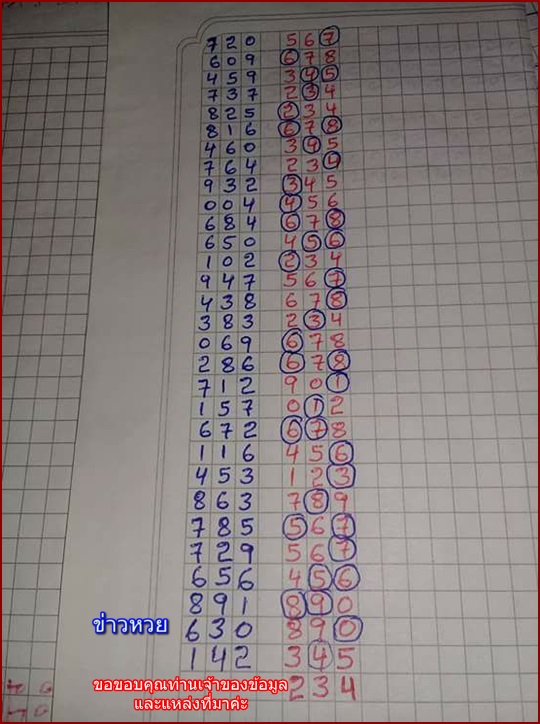 720 567
609 678
459 345
737 234
825 234
816 678
460 345
764 234
932 345
004 456
684 678
650 456
102 234
947 567
438 678
383 234
069 678
286 678
712 901
157 012
672 678
116 456
453 123
863 789
785 567
729 567
656 456
891 890
ข่าวหวย
630 890
142 345
234
ขอขอบคุณท่านเจ้าของข้อมูล
และแหล่งที่มาค่ะ